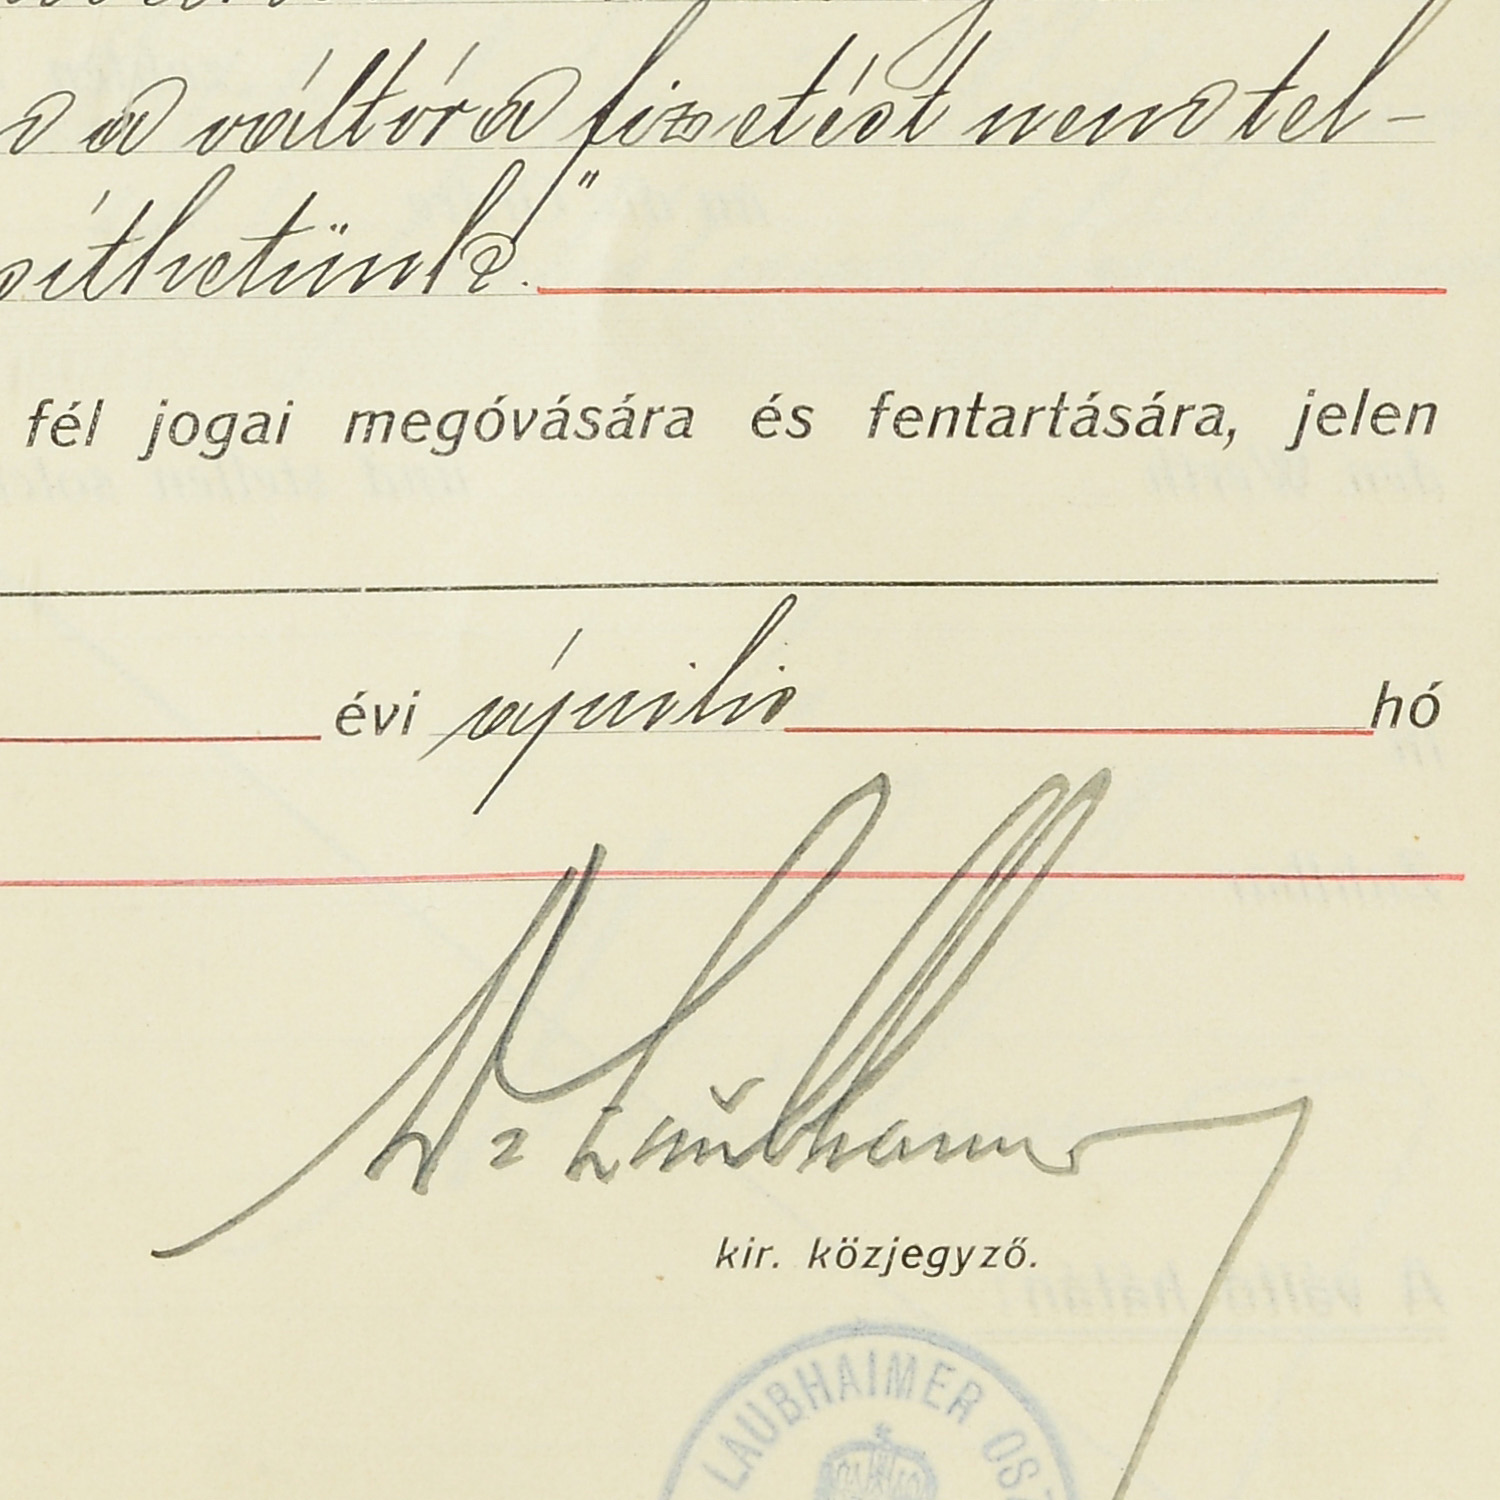 a váltóra fizetést nem tel-
síthetünk."
fél jogai megóvására és fentartására, jelen
évi április hó
Dr Laubhaimer
kir. közjegyző.
LAUBHAIMER OSZ